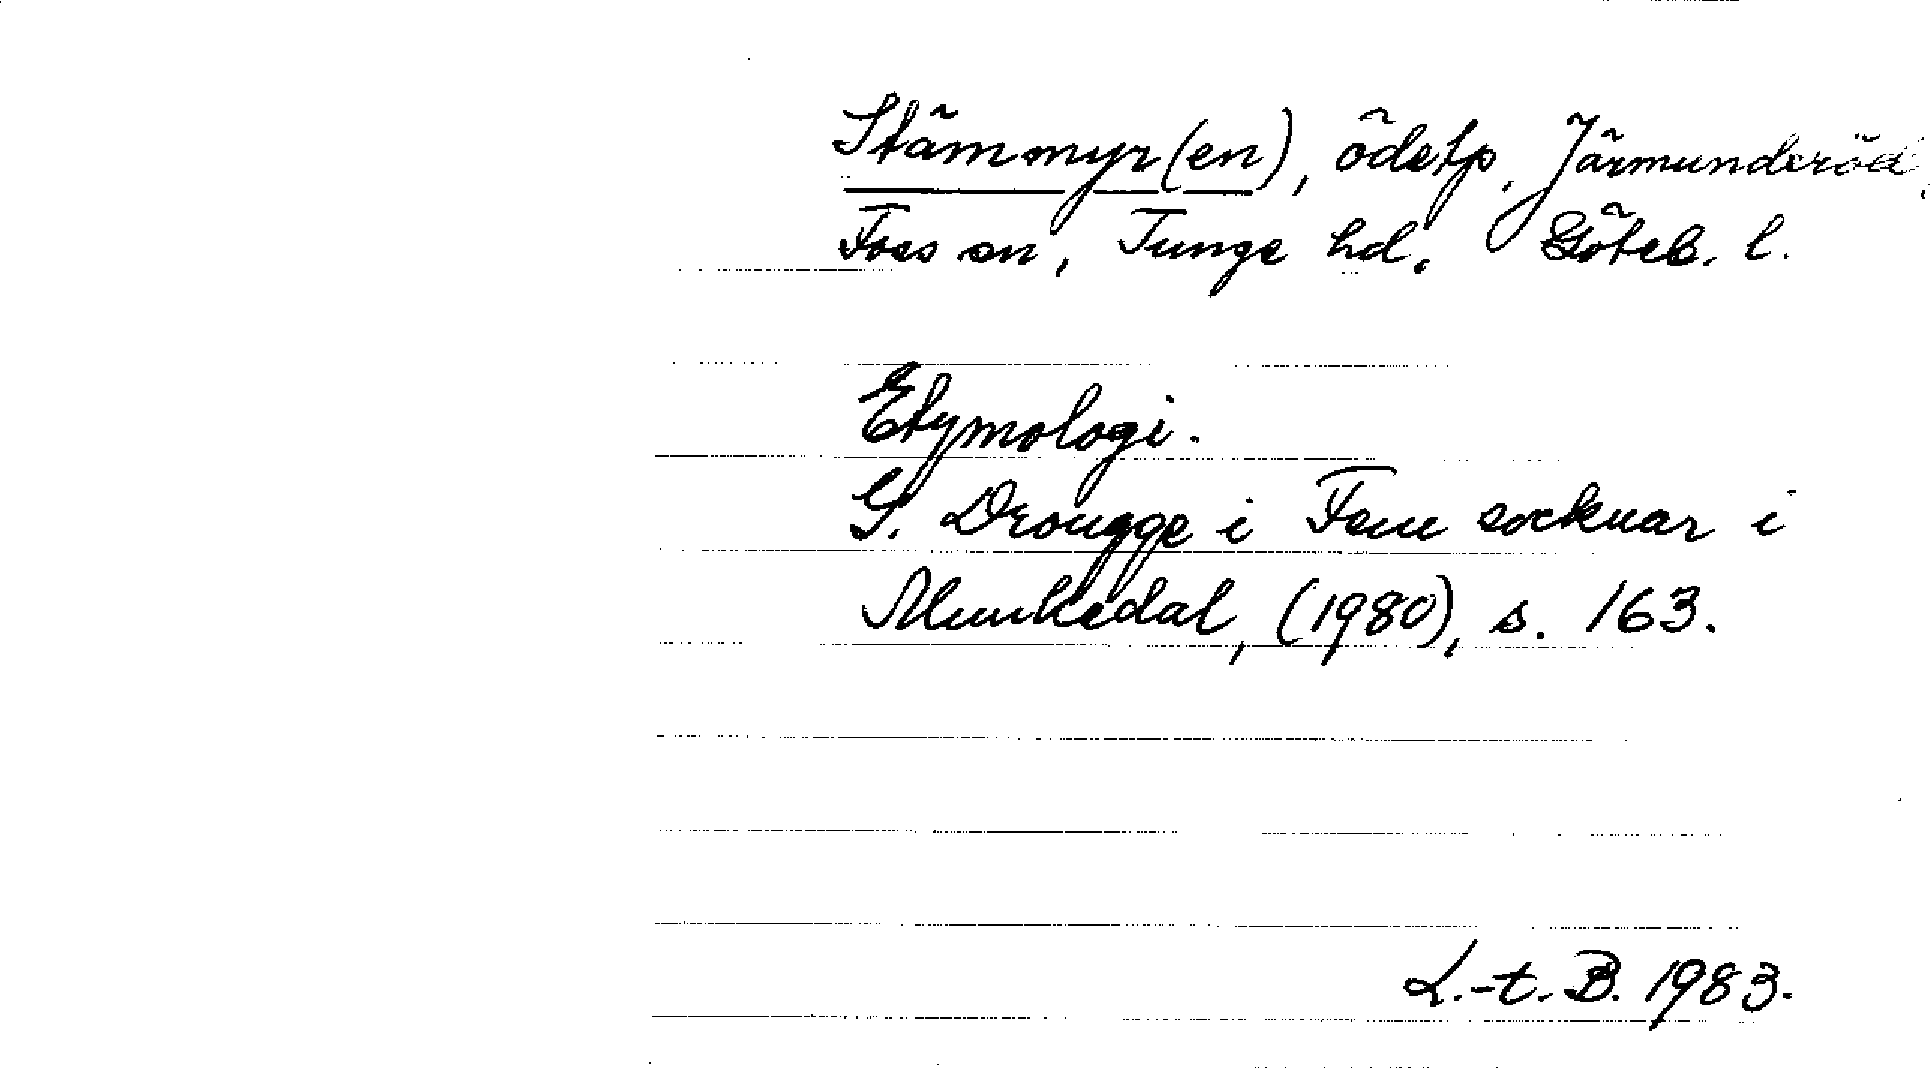 Stämmyr(en), ödetp. Järmunderöd,
Foss sn, Tunge hd, Göteb. l.
Etymologi.
G. Drougge i Fem socknar i
Munkedal, (1980), s. 163.
L.-t. B. 1983.